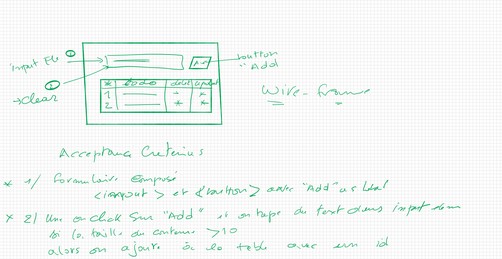 input
button
"Add"
clear
Add
todo
1
2
Wire-frame
Acceptance Criterias
* 1/ Formulaire composé
<input> et <button> avec "Add" as label
* 2/ Une onclick sur "Add" si on tape du text dans input
si la taille du contenu > 10
alors on ajoute à la table avec un id